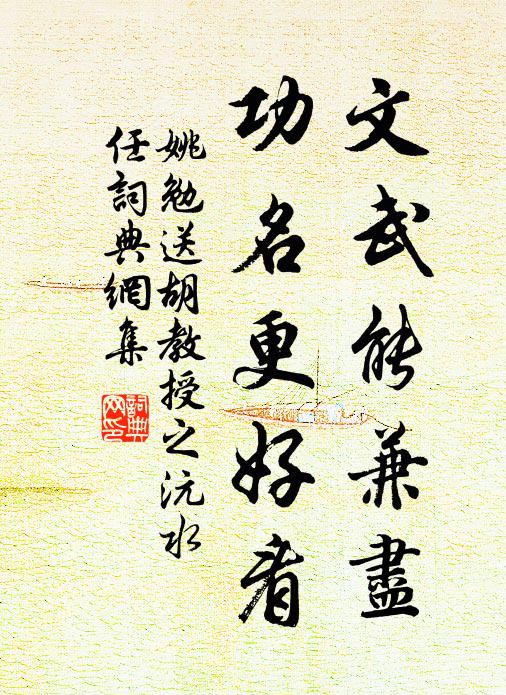 文武能兼盡
功名更好看
姚勉送胡教授之沅水
任詞典網集
詞典
网印